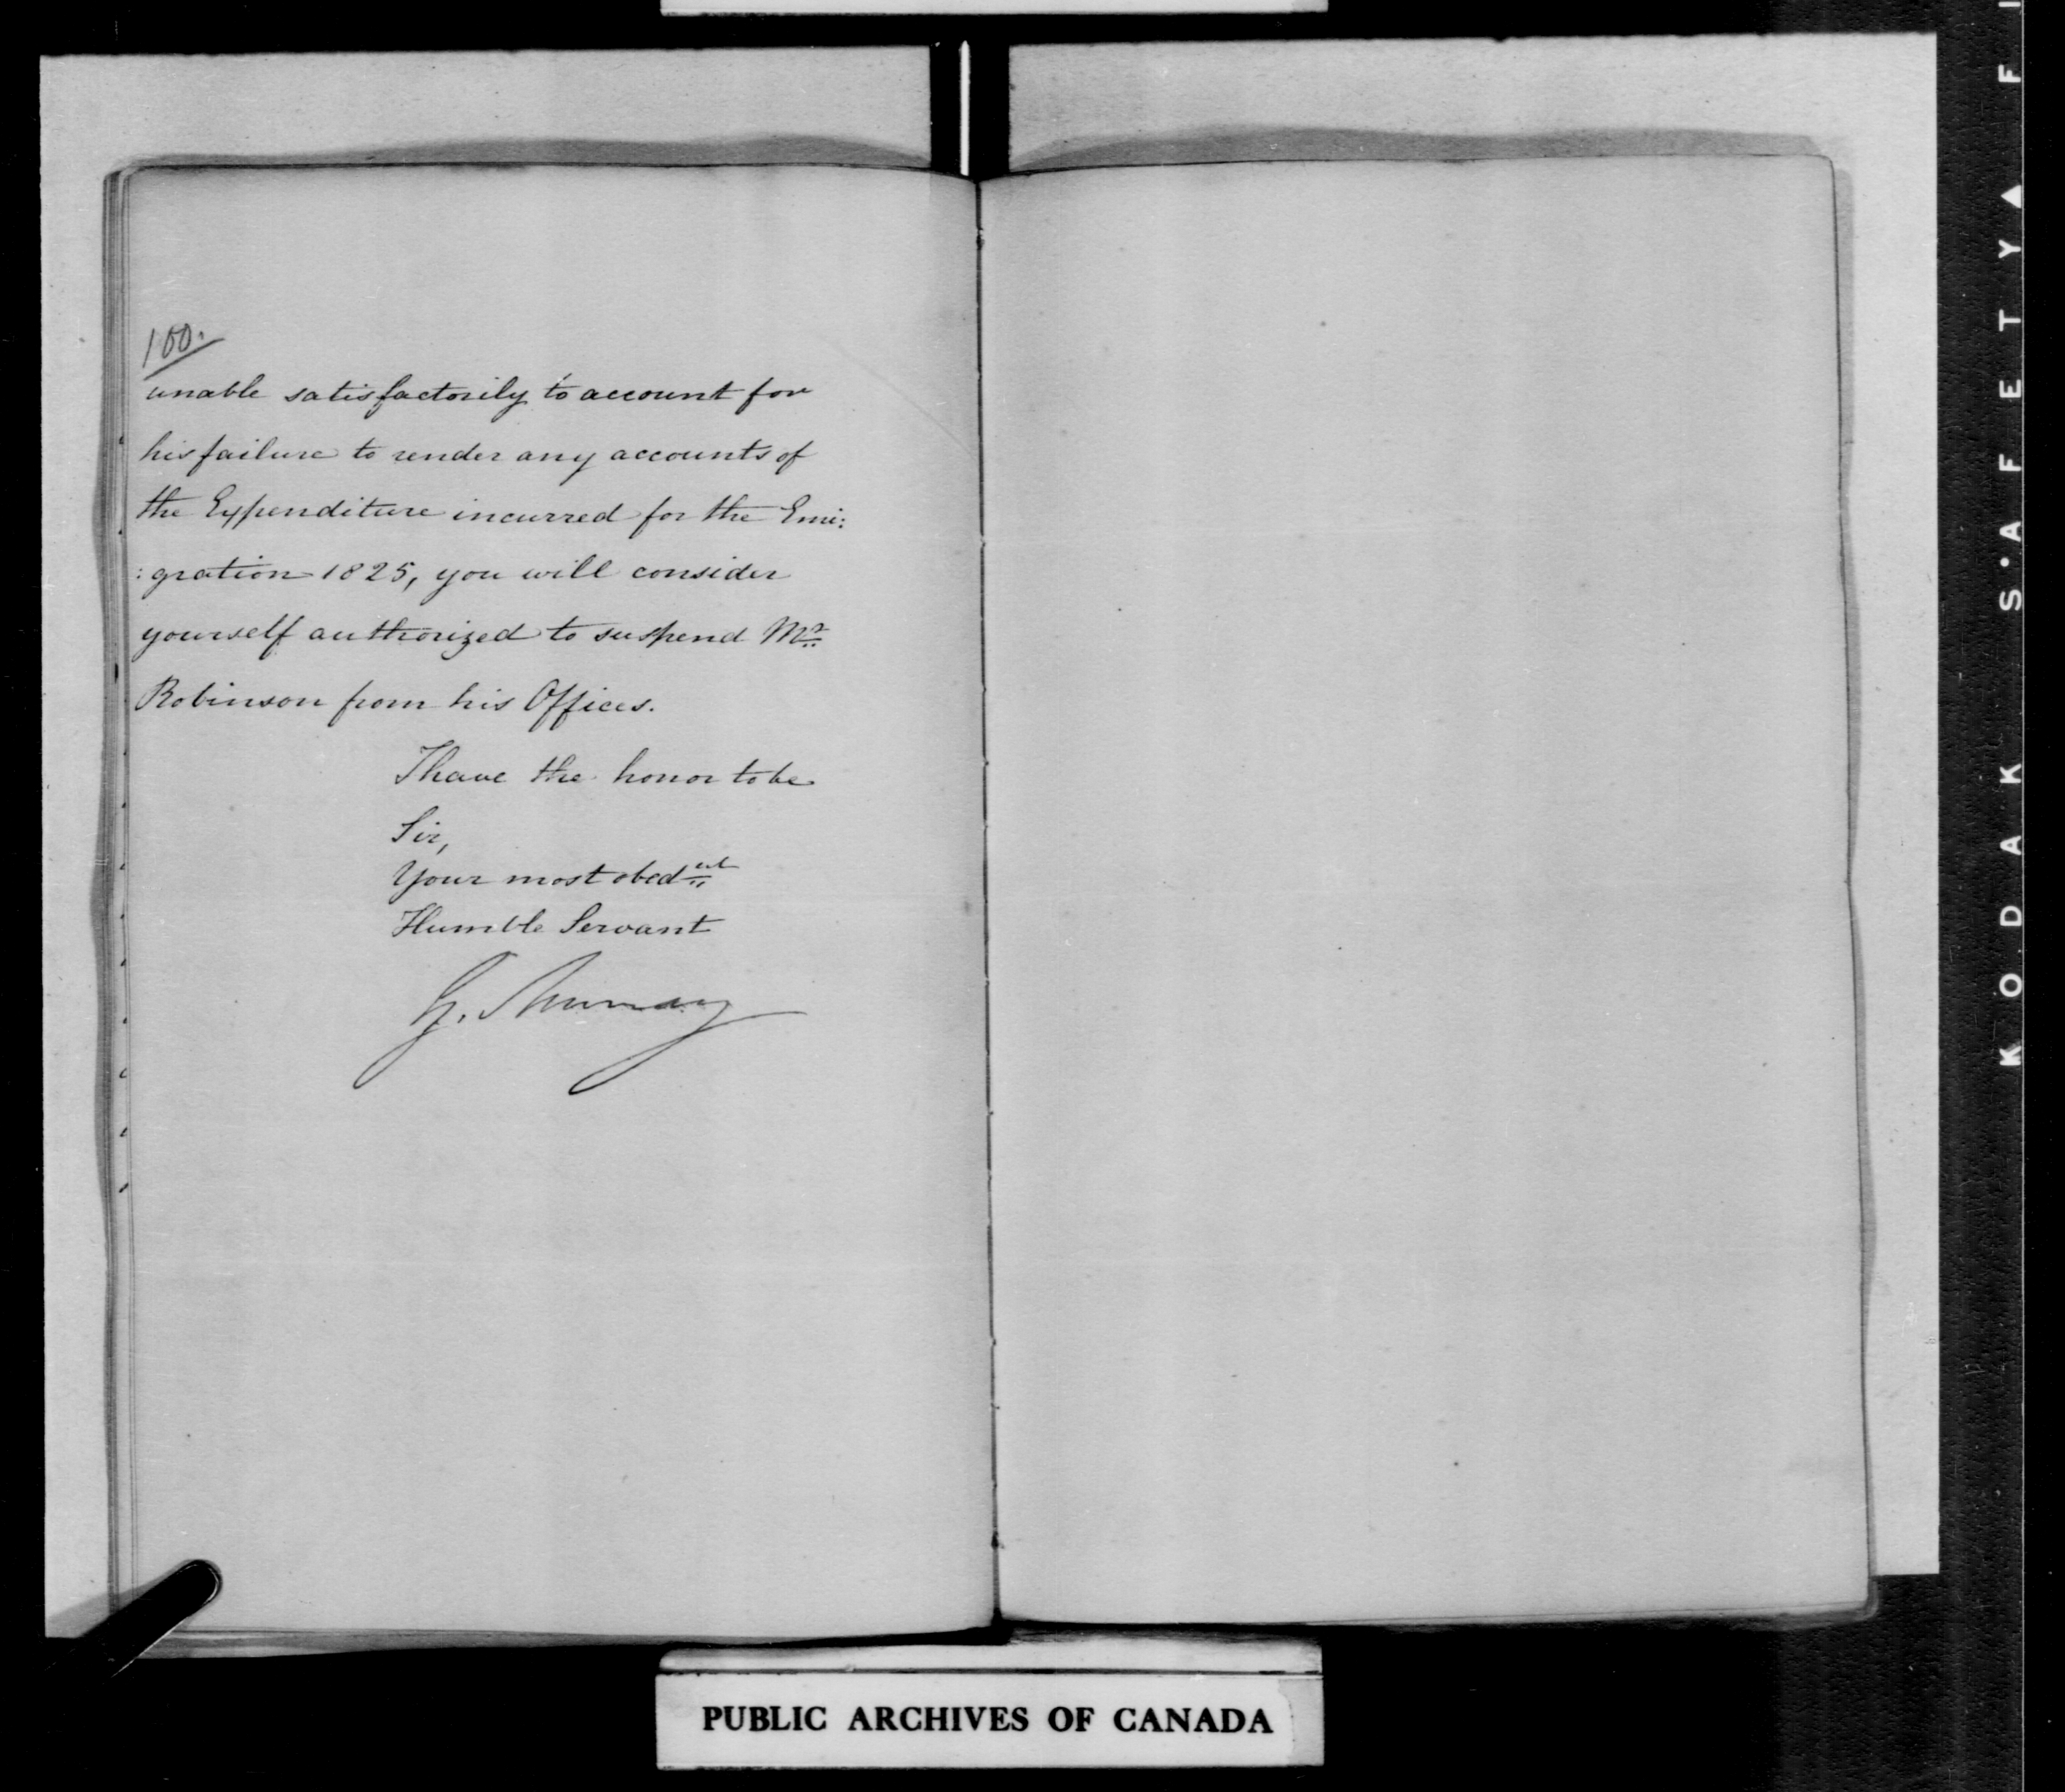 100.
unable satisfactorily to account for
his failure to render any accounts of
the Expenditure incurred for the Emi:
:gration 1825, you will consider
yourself authorized to suspend Mr
Robinson from his Offices.
I have the honor to be
Sir,
Your most obedent
Humble Servant
G. Murray
PUBLIC ARCHIVES OF CANADA
KODAK S·AFETY▲ F I